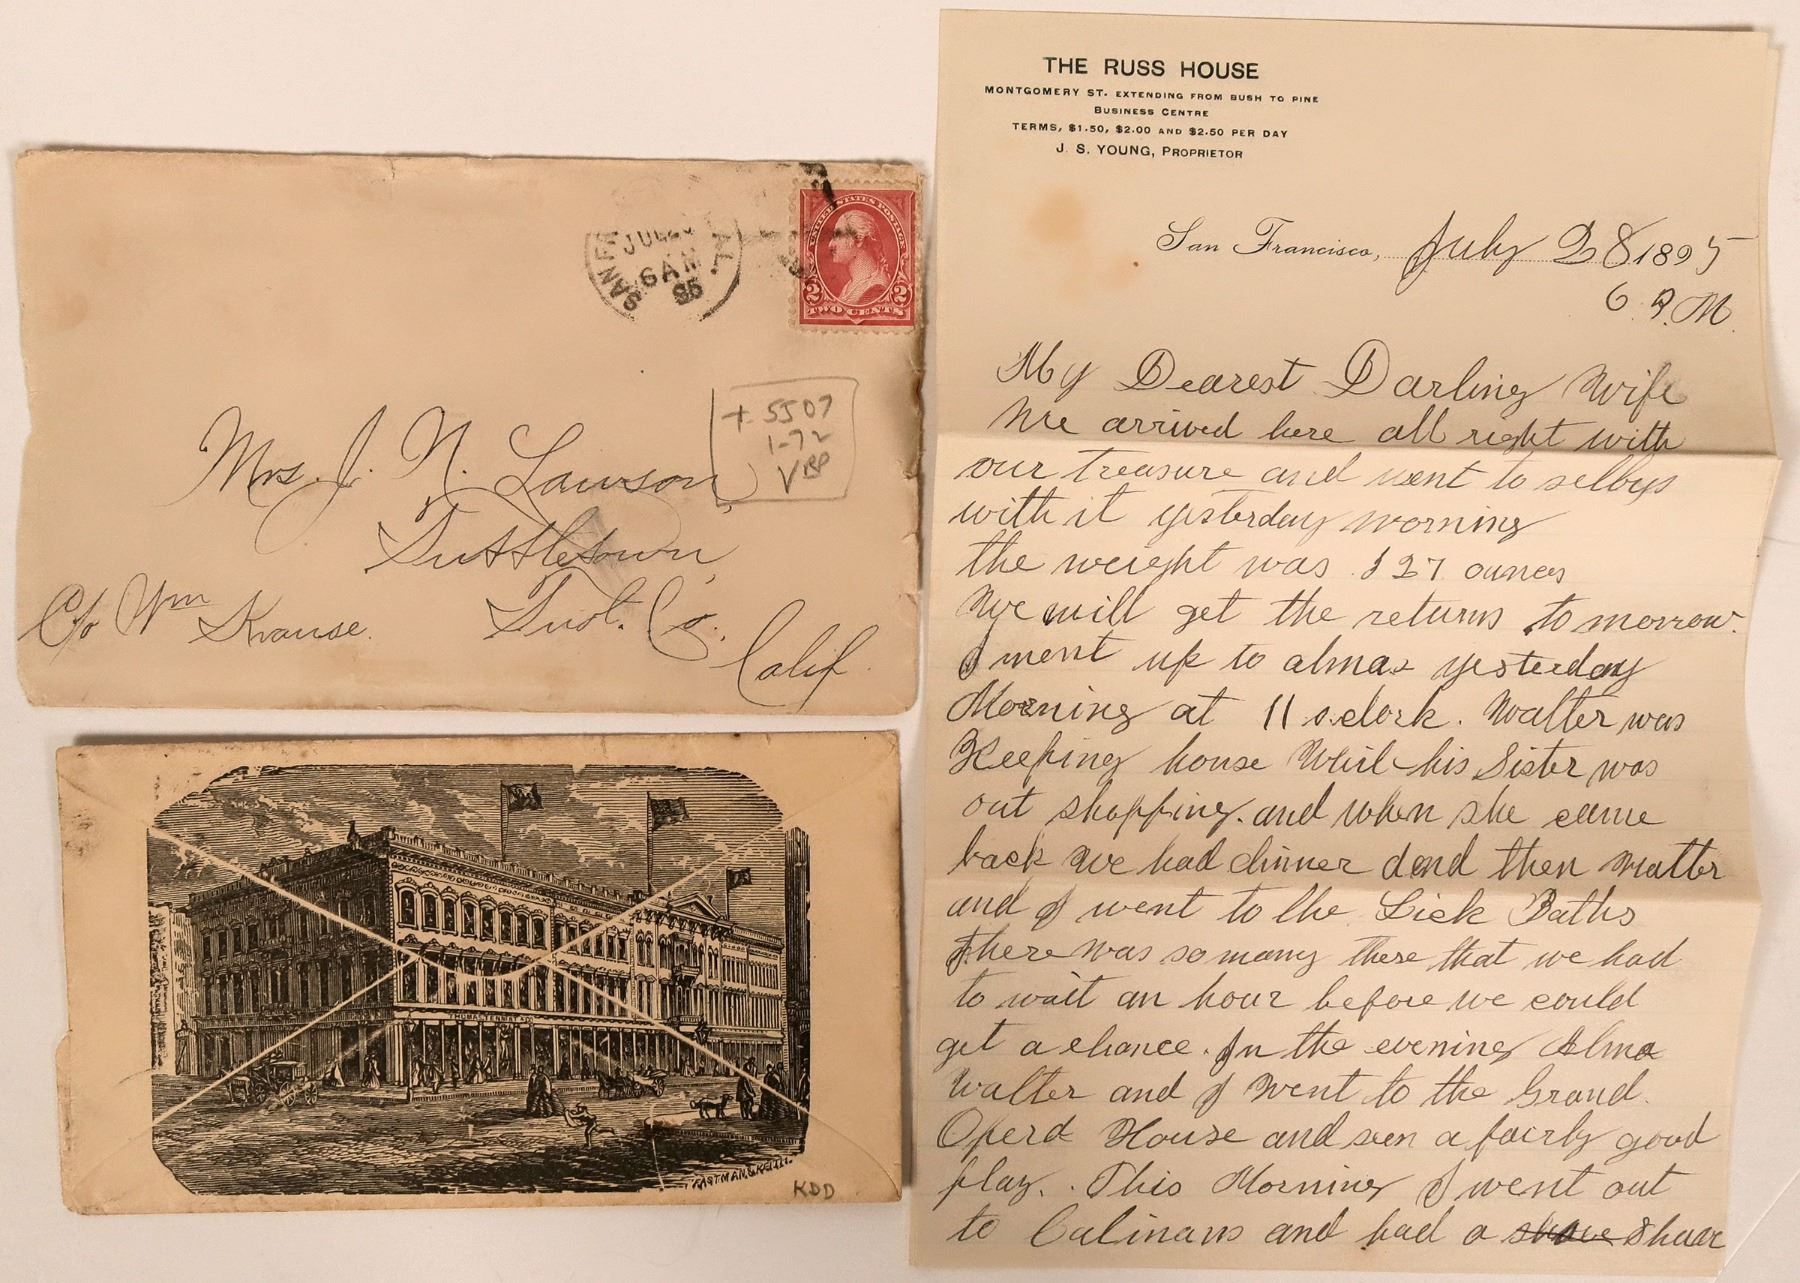 SAN FR CAL.
JUL 2
6 AM
95
UNITED STATES POSTAGE
2 2
TWO CENTS
+ 5507
1-72
V BP
Mrs. J. N. Lawson,
Tuttletown,
C/o Wm Krause. Tuol. Co.,
Calif.
EASTMAN & KEITH.
KDD
THE RUSS HOUSE
MONTGOMERY ST. EXTENDING FROM BUSH TO PINE
BUSINESS CENTRE
TERMS, $1.50, $2.00 AND $2.50 PER DAY
J. S. YOUNG, PROPRIETOR
San Francisco, July 28 1895
6 P.M.
My Dearest Darling Wife
We arrived here all right with
our treasure and went to selbys
with it yesterday morning
the weight was 327 ounces
We will get the returns to morrow.
I went up to almas yesterday
Morning at 11 o.clock. Walter was
Keeping house Whil his Sister was
out shopping. and when she came
back We had dinner and then Walter
and I went to the Lick Baths
there was so many there that we had
to wait an hour before we could
get a chance. In the evening Alma
Walter and I Went to the Grand
Opera House and seen a fairly good
play. This Morning I went out
to Calinans and had a shave Shave